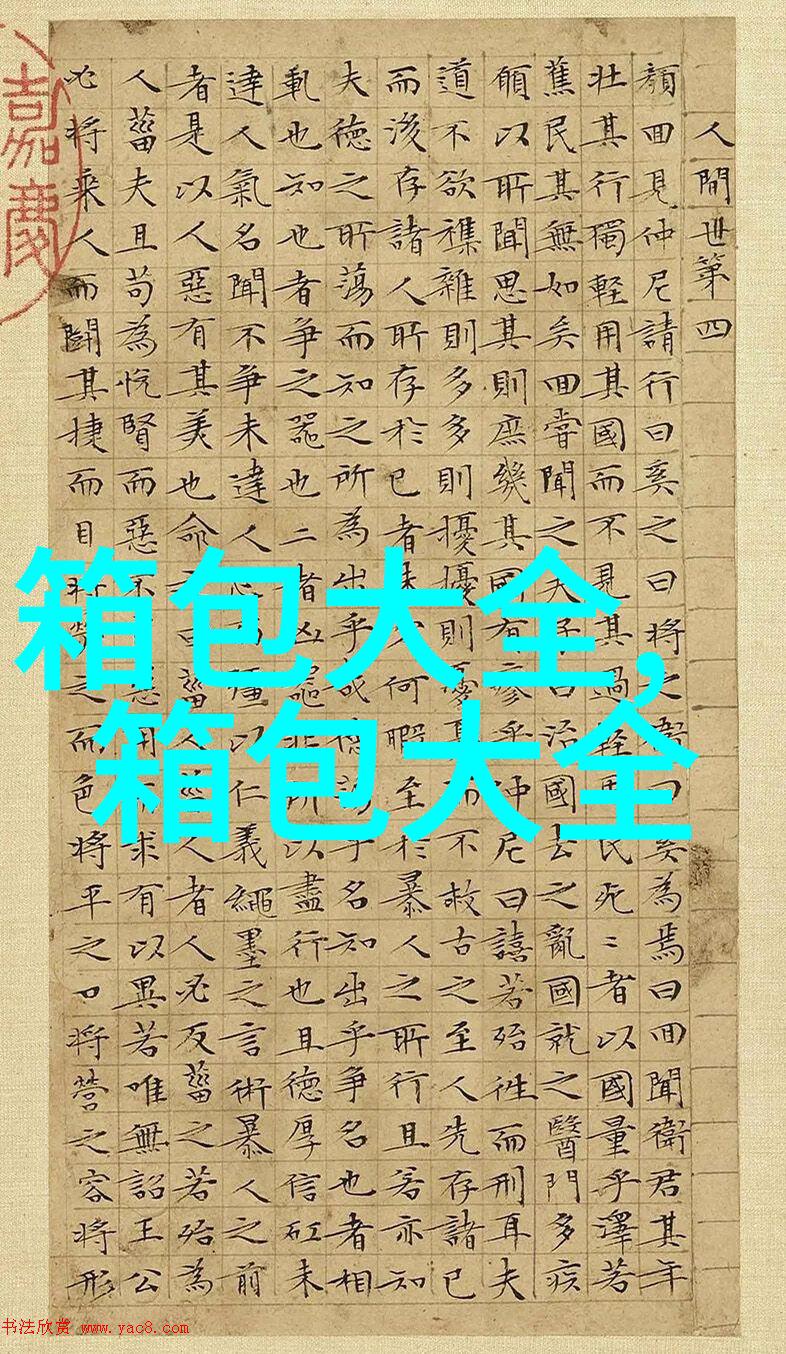 人間世第四
顏回見仲尼請行曰奚之曰將之衛曰奚為焉曰回聞衛君其年
壮其行獨輕用其國而不見其過輕用民死〻者以國量乎澤若
蕉民其無如矣回嘗聞之夫子曰治國去之亂國就之醫門多疾
願以所聞思其則庶幾其國有瘳乎仲尼曰譆若殆徃而刑耳夫
道不欲襍雜則多多則擾擾則憂而不救古之至人先存諸已
而後存諸人所存於已者未何暇至於暴人之所行且若亦知
夫德之所蕩而知之所為出乎哉德蕩乎名知出乎爭名也者相
軋也知也者爭之器也二者凶器非所以盡行也且德厚信矼未
達人氣名聞不爭未達人心而彊以仁義繩墨之言術暴人之前
者是以人惡有其美也命曰菑人者人必反菑之若殆為
人菑夫且苟為悅賢而惡不惡用而求有以異若唯無詔王公
必將乘人而鬭其捷而目將熒之而色將平之口將營之容將形
嘉慶
箱包大全,
箱包大全
书法欣赏 www.yac8.com